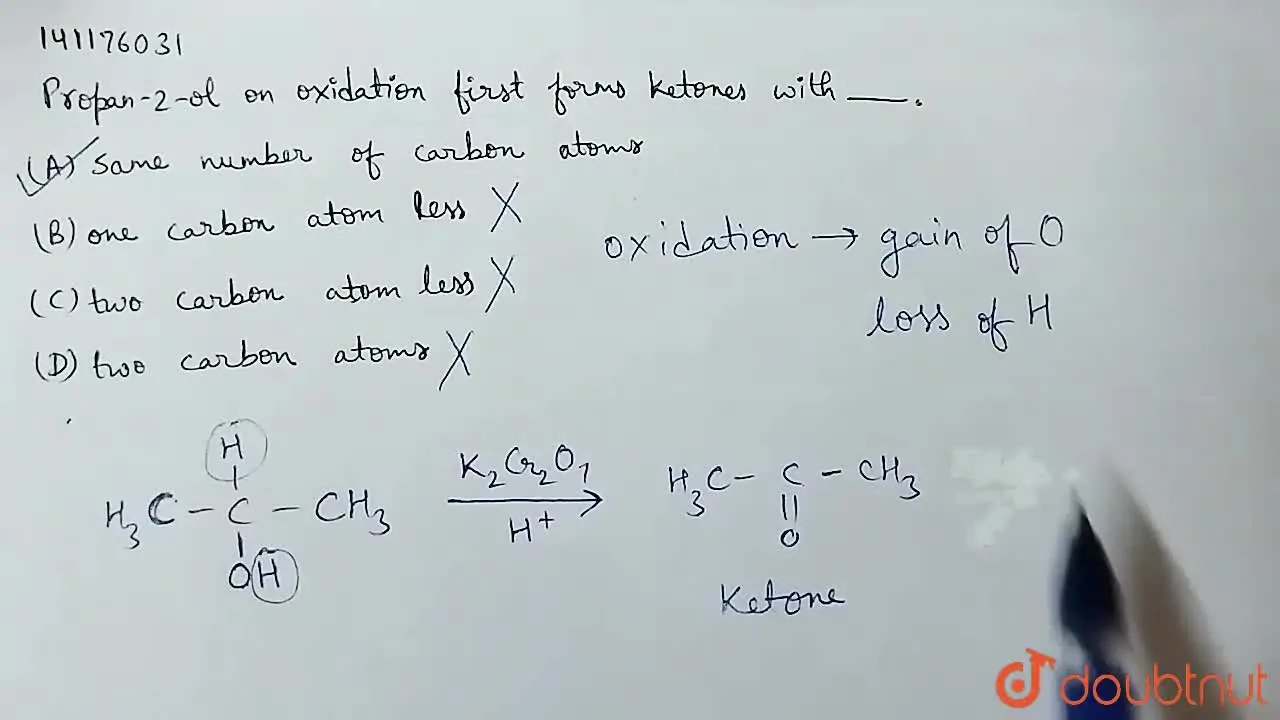 141176031
Propan-2-ol on oxidation first forms ketones with ___.
(A) Same number of carbon atoms
(B) one carbon atom less X
(C) two carbon atom less X
(D) two carbon atoms X
oxidation → gain of O
loss of H
H
H₃C - C - CH₃
OH
K₂Cr₂O₇
H⁺
H₃C - C - CH₃
O
Ketone
doubtnut